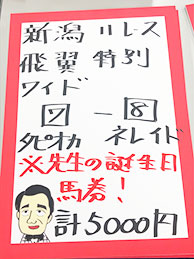 新潟11レース
飛翼特別
ワイド
7-8
タピオカ ネレイド
※先生の誕生日
馬券!
計5000円